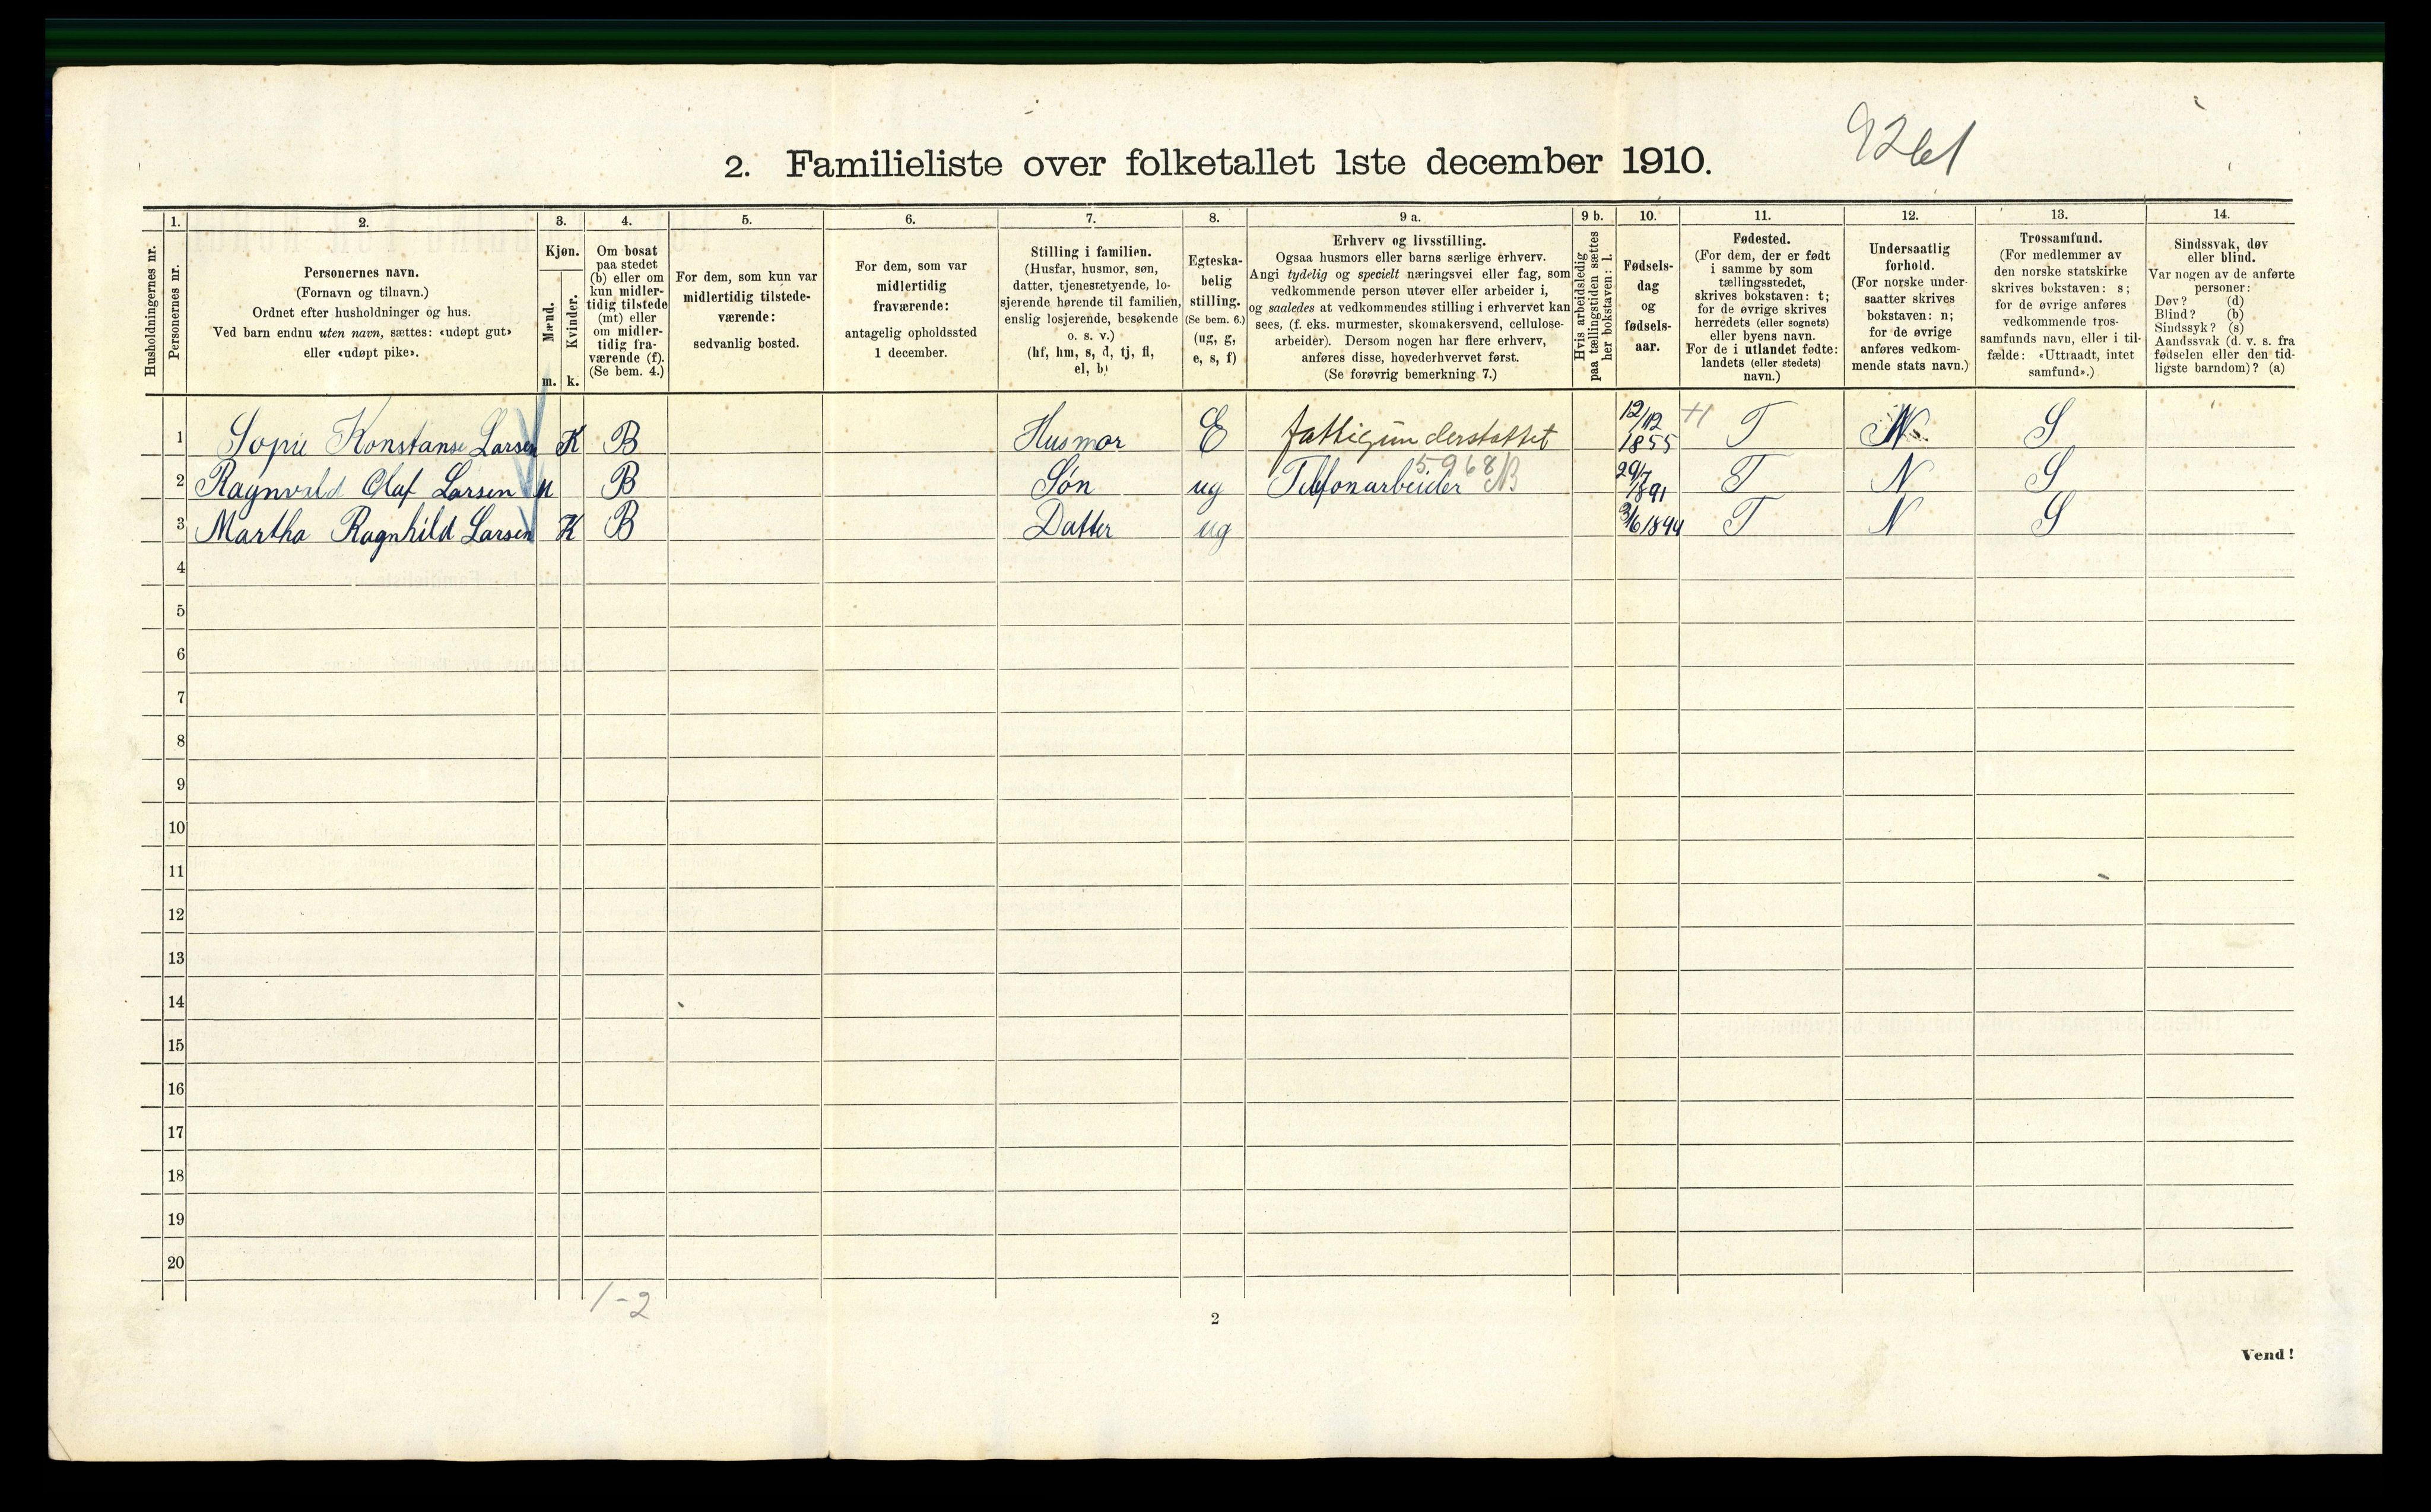 9261
2. Familieliste over folketallet 1ste december 1910.
Husholdningernes nr.
1.
Personernes nr.
2.
Personernes navn.
(Fornavn og tilnavn.)
Ordnet efter husholdninger og hus.
Ved barn endnu uten navn, sættes: «udøpt gut»
eller «udøpt pike».
3.
Kjøn.
Mænd.
Kvinder.
m. k.
4.
Om bosat
paa stedet
(b) eller om
kun midler-
tidig tilstede
(mt) eller
om midler-
tidig fra-
værende (f).
(Se bem. 4.)
5.
For dem, som kun var
midlertidig tilstede-
værende:
sedvanlig bosted.
6.
For dem, som var
midlertidig
fraværende:
antagelig opholdssted
1 december.
7.
Stilling i familien.
(Husfar, husmor, søn,
datter, tjenestetyende, lo-
sjerende hørende til familien,
enslig losjerende, besøkende
o. s. v.)
(hf, hm, s, d, tj, fl,
el, b)
8.
Egteska-
belig
stilling.
(Se bem. 6.)
(ug, g,
e, s, f)
9 a.
Erhverv og livsstilling.
Ogsaa husmors eller barns særlige erhverv.
Angi tydelig og specielt næringsvei eller fag, som
vedkommende person utøver eller arbeider i,
og saaledes at vedkommendes stilling i erhvervet kan
sees, (f. eks. murmester, skomakersvend, cellulose-
arbeider). Dersom nogen har flere erhverv,
anføres disse, hovederhvervet først.
(Se forøvrig bemerkning 7.)
9 b.
Hvis arbeidsledig
paa tællingstiden sættes
her bokstaven: l.
10.
Fødsels-
dag
og
fødsels-
aar.
11.
Fødested.
(For dem, der er født
i samme by som
tællingsstedet,
skrives bokstaven: t;
for de øvrige skrives
herredets (eller sognets)
eller byens navn.
For de i utlandet fødte:
landets (eller stedets)
navn.)
12.
Undersaatlig
forhold.
(For norske under-
saatter skrives
bokstaven: n;
for de øvrige
anføres vedkom-
mende stats navn.)
13.
Trossamfund.
(For medlemmer av
den norske statskirke
skrives bokstaven: s;
for de øvrige anføres
vedkommende tros-
samfunds navn, eller i til-
fælde: «Uttraadt, intet
samfund».)
14.
Sindssvak, døv
eller blind.
Var nogen av de anførte
personer:
Døv? (d)
Blind? (b)
Sindssyk? (s)
Aandssvak (d. v. s. fra
fødselen eller den tid-
ligste barndom)? (a)
1 Sopie Konstanse Larsen K B Husmor E fattigunderstøttet 12/12 1855 T N. S
2 Ragnvald Olaf Larsen M B Søn ug Telefonarbeider 5968 29/7 1891 T N S
3 Martha Ragnhild Larsen K B Datter ug 3/6 1894 T N S
4
5
6
7
8
9
10
11
12
13
14
15
16
17
18
19
20
1-2
2
Vend!